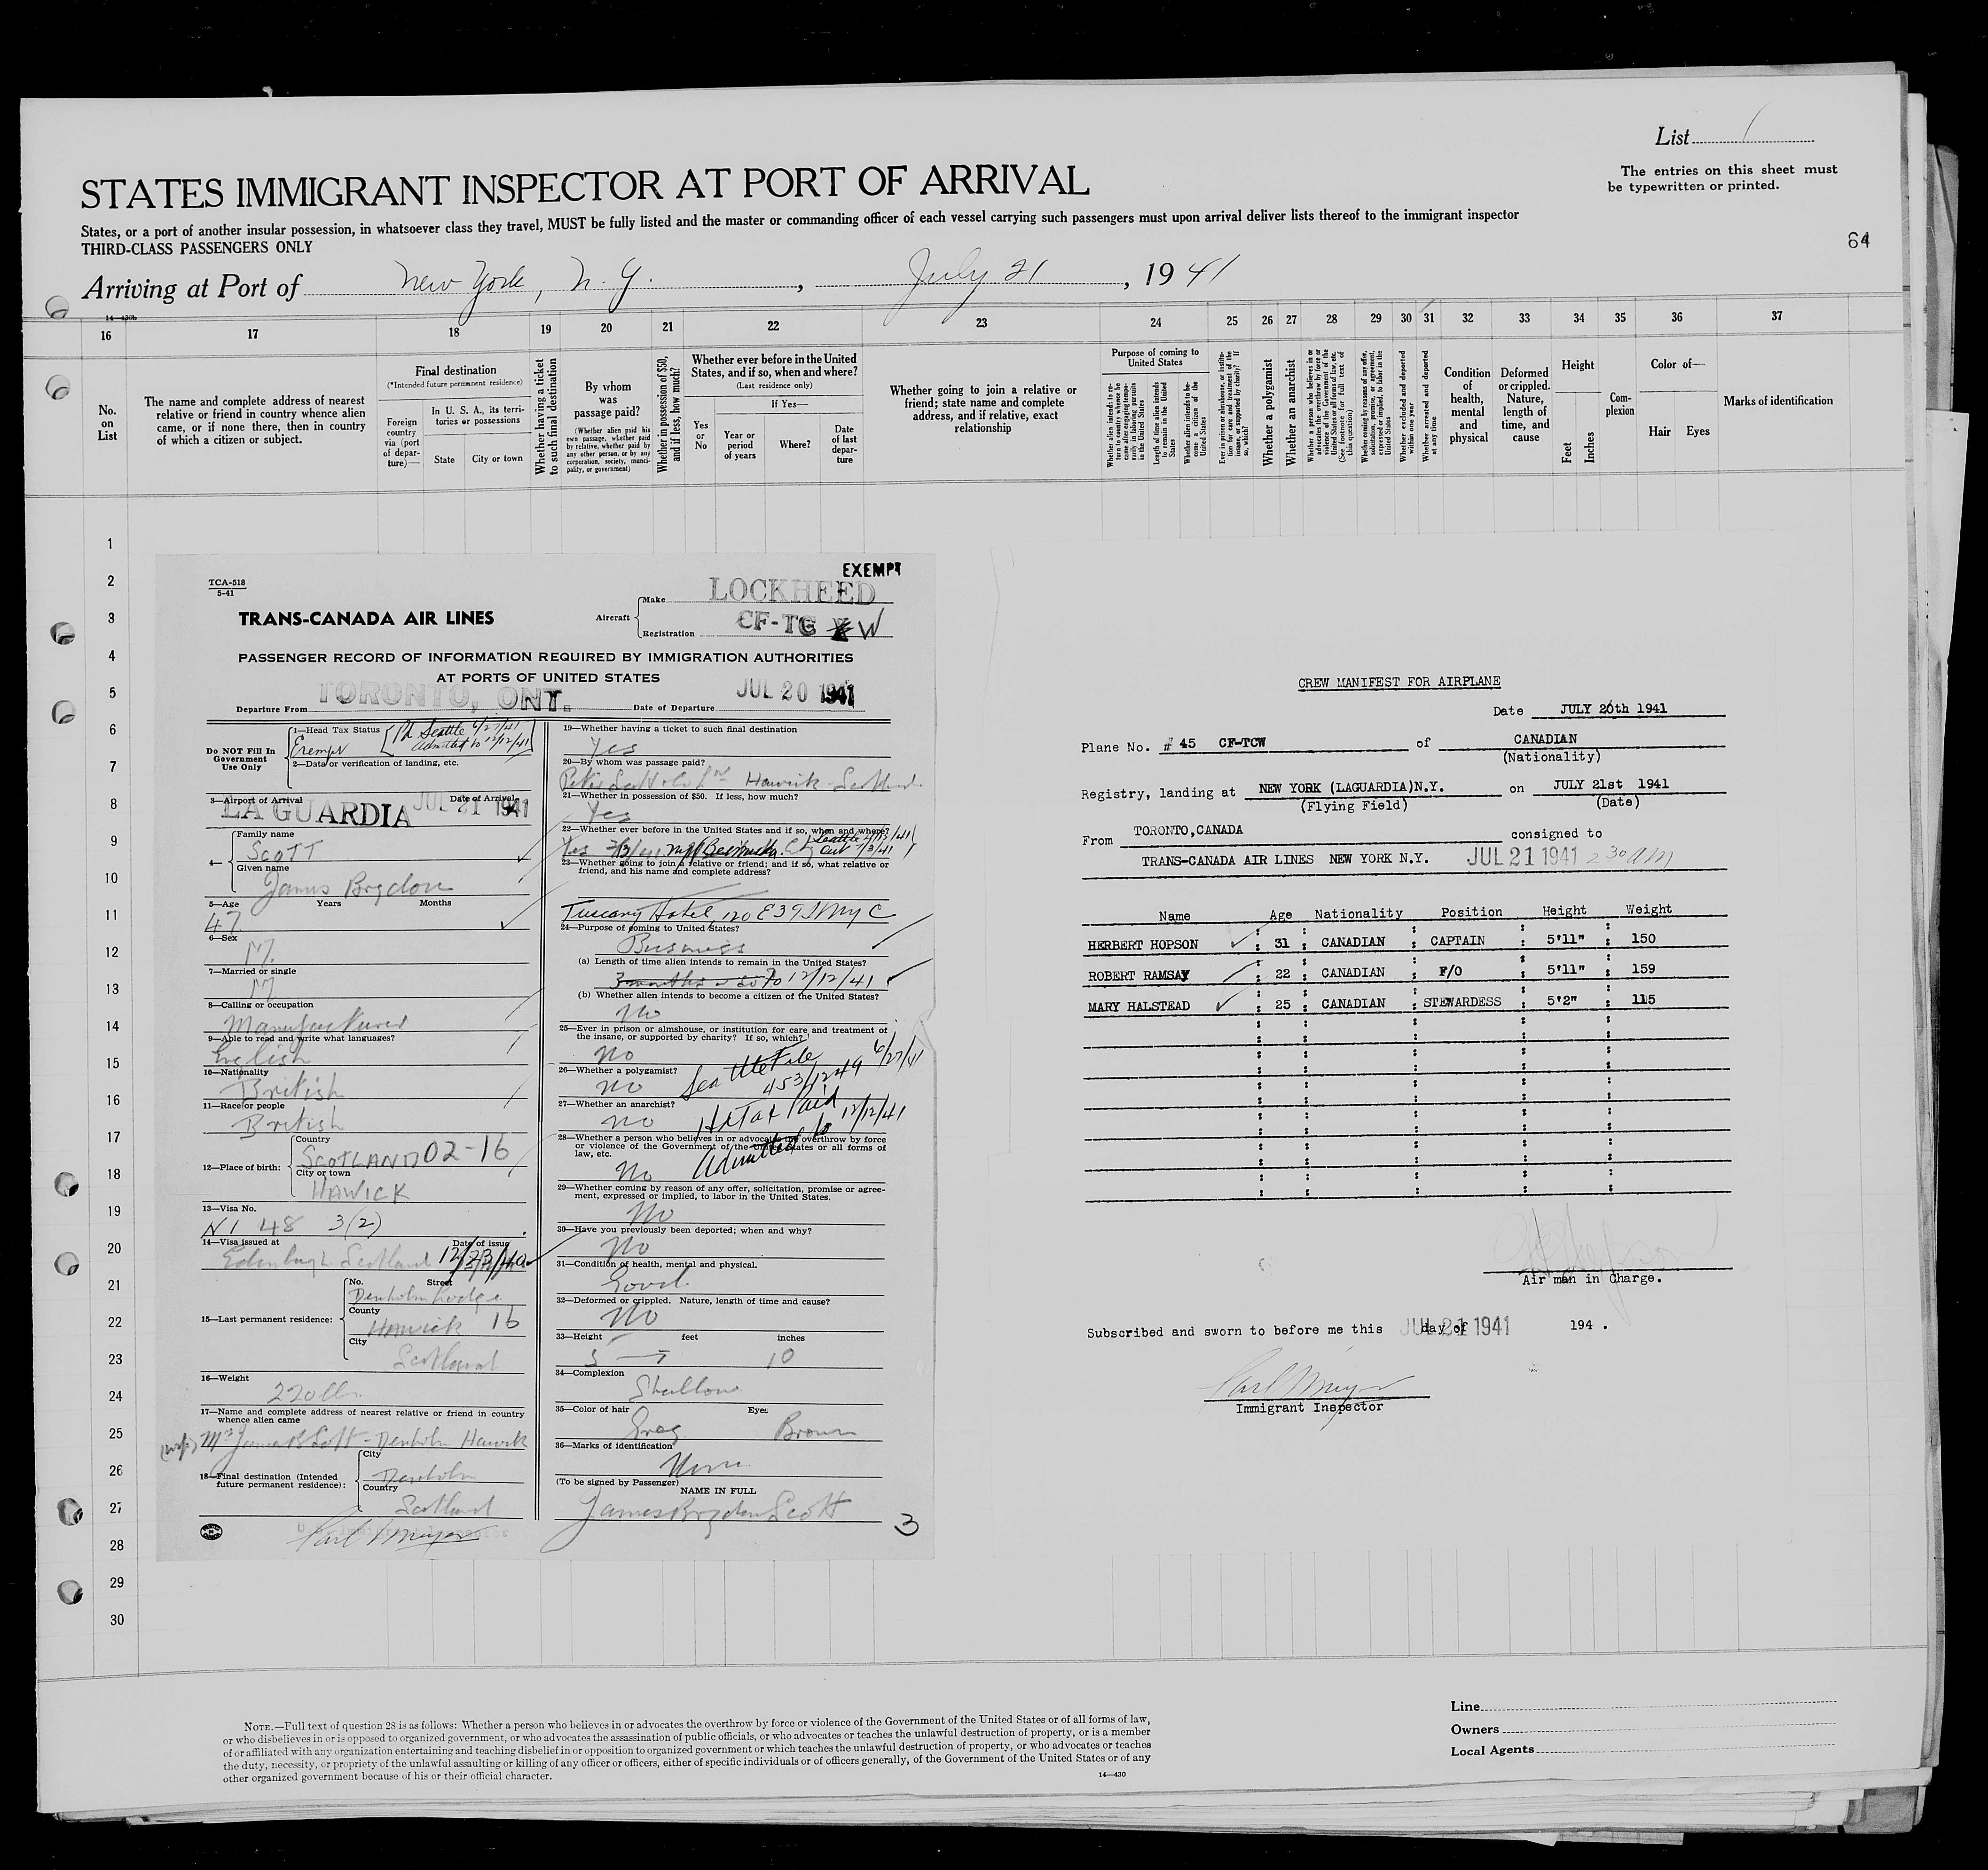 List 1
The entries on this sheet must
be typewritten or printed.
STATES IMMIGRANT INSPECTOR AT PORT OF ARRIVAL
States, or a port of another insular possession, in whatsoever class they travel, MUST be fully listed and the master or commanding officer of each vessel carrying such passengers must upon arrival deliver lists thereof to the immigrant inspector
THIRD-CLASS PASSENGERS ONLY
64
Arriving at Port of New York, N.Y. , July 21 , 1941
14—430b
16 17 18 19 20 21 22 23 24 25 26 27 28 29 30 31 32 33 34 35 36 37
No. on List
The name and complete address of nearest
relative or friend in country whence alien
came, or if none there, then in country
of which a citizen or subject.
Final destination
(*Intended future permanent residence)
Foreign country via (port of departure)—
In U. S. A., its territories or possessions
State
City or town
Whether having a ticket to such final destination
By whom was passage paid?
(Whether alien paid his own passage, whether paid by relative, whether paid by any other person, or by any corporation, society, municipality, or government)
Whether in possession of $50, and if less, how much?
Whether ever before in the United
States, and if so, when and where?
(Last residence only)
Yes or No
If Yes—
Year or period of years
Where?
Date of last departure
Whether going to join a relative or
friend; state name and complete
address, and if relative, exact
relationship
Purpose of coming to United States
Length of time alien intends to remain in the United States
Whether alien intends to become a citizen of the United States
Whether a polygamist
Whether an anarchist
Whether excluded and deported within one year
Whether arrested and deported at any time
Condition of health, mental and physical
Deformed or crippled. Nature, length of time, and cause
Height
Feet
Inches
Complexion
Color of—
Hair
Eyes
Marks of identification
1
2
3
4
5
6
7
8
9
10
11
12
13
14
15
16
17
18
19
20
21
22
23
24
25
26
27
28
29
30
TCA-518
5-41
EXEMPT
TRANS-CANADA AIR LINES
Aircraft
Make LOCKHEED
Registration CF-TC W
PASSENGER RECORD OF INFORMATION REQUIRED BY IMMIGRATION AUTHORITIES
AT PORTS OF UNITED STATES
Departure From TORONTO, ONT. Date of Departure JUL 20 1941
Do NOT Fill In Government Use Only
1—Head Tax Status Exempt Pd Seattle 6/27/41 admitted to 12/12/41
2—Data or verification of landing, etc.
3—Airport of Arrival LA GUARDIA Date of Arrival JUL 21 1941
4— Family name SCOTT
Given name James Brydon
5—Age 47 Years Months
6—Sex M.
7—Married or single M
8—Calling or occupation
Manufacturer
9—Able to read and write what languages?
English
10—Nationality
British
11—Race or people
British
12—Place of birth: Country SCOTLAND 02-16
City or town HAWICK
13—Visa No.
NI 48 3(2)
14—Visa issued at Edinburgh Scotland Date of issue 12/23/40
15—Last permanent residence: No. Street Denholm Lodge
County Hawick 16
City Scotland
16—Weight
220 lbs
17—Name and complete address of nearest relative or friend in country
whence alien came
(wife) Mrs James B Scott - Denholm Hawick
18—Final destination (Intended future permanent residence): City Denholm
Country Scotland
Carl Meyer
19—Whether having a ticket to such final destination
Yes
20—By whom was passage paid?
Peter Scott & Co Ltd Hawick - Scotland
21—Whether in possession of $50. If less, how much?
Yes
22—Whether ever before in the United States and if so, when and where?
Yes
23—Whether going to join a relative or friend; and if so, what relative or
friend, and his name and complete address?
Tuscany Hotel, 120 E 39 St NYC
24—Purpose of coming to United States?
Business
(a) Length of time alien intends to remain in the United States?
3 months to 12/12/41
(b) Whether alien intends to become a citizen of the United States?
No
25—Ever in prison or almshouse, or institution for care and treatment of
the insane, or supported by charity? If so, which?
No
26—Whether a polygamist?
No
Seattle File 6/27/41
27—Whether an anarchist?
No
Hd Tax Paid
Admitted to 12/12/41
28—Whether a person who believes in or advocates the overthrow by force
or violence of the Government of the United States or all forms of
law, etc.
No
29—Whether coming by reason of any offer, solicitation, promise or agree-
ment, expressed or implied, to labor in the United States.
No
30—Have you previously been deported; when and why?
No
31—Condition of health, mental and physical.
Good.
32—Deformed or crippled. Nature, length of time and cause?
No
33—Height feet inches
5 10
34—Complexion
Shallow
35—Color of hair Eyes
Grey Brown
36—Marks of identification
None
(To be signed by Passenger) NAME IN FULL
James Brydon Scott
3
CREW MANIFEST FOR AIRPLANE
Date JULY 20th 1941
Plane No. # 45 CF-TCW of CANADIAN
(Nationality)
Registry, landing at NEW YORK (LAGUARDIA)N.Y. on JULY 21st 1941
(Flying Field) (Date)
From TORONTO,CANADA consigned to
TRANS-CANADA AIR LINES NEW YORK N.Y. JUL 21 1941 2 30 AM
Name Age Nationality Position Height Weight
HERBERT HOPSON : 31 : CANADIAN : CAPTAIN : 5'11" : 150
ROBERT RAMSAY : 22 : CANADIAN : F/O : 5'11" : 159
MARY HALSTEAD : 25 : CANADIAN : STEWARDESS : 5'2" : 115
Air man in Charge.
Subscribed and sworn to before me this JUL 21 1941 day of 194 .
Carl Meyer
Immigrant Inspector
NOTE.—Full text of question 28 is as follows: Whether a person who believes in or advocates the overthrow by force or violence of the Government of the United States or of all forms of law,
or who disbelieves in or is opposed to organized government, or who advocates the assassination of public officials, or who advocates or teaches the unlawful destruction of property, or is a member
of or affiliated with any organization entertaining and teaching disbelief in or opposition to organized government or which teaches the unlawful destruction of property, or who advocates or teaches
the duty, necessity, or propriety of the unlawful assaulting or killing of any officer or officers, either of specific individuals or of officers generally, of the Government of the United States or of any
other organized government because of his or their official character.
14—430
Line
Owners
Local Agents